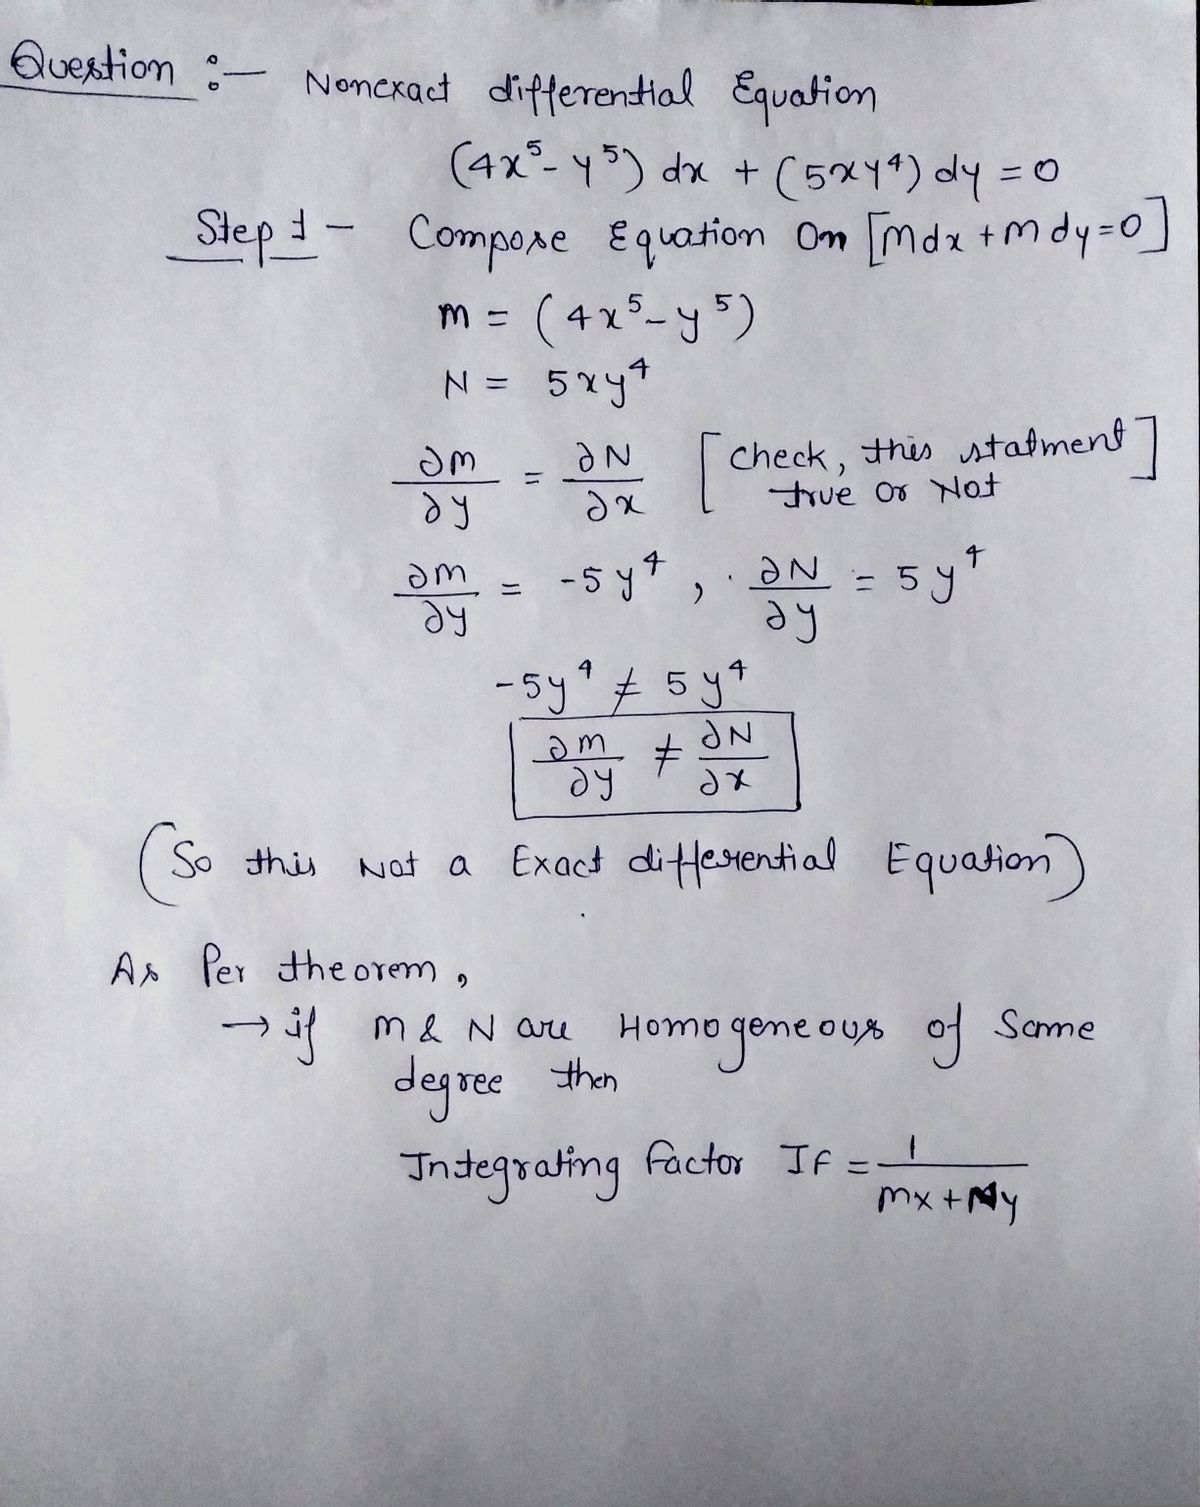 Question :- Nonexact differential Equation
(4x⁵- y⁵) dx + (5xy⁴) dy = 0
Step 1 - Compose Equation On [Mdx + m dy=0]
m = (4x⁵-y⁵)
N = 5xy⁴
∂m/∂y = ∂N/∂x [check, this statment true or Not]
∂m/∂y = -5y⁴, ∂N/∂y = 5y⁴
-5y⁴ ≠ 5y⁴
∂m/∂y ≠ ∂N/∂x
(So this Not a Exact differential Equation)
As Per theorem,
→ if m & N are Homogeneous of Same
degree then
Integrating factor If = 1/mx + Ny